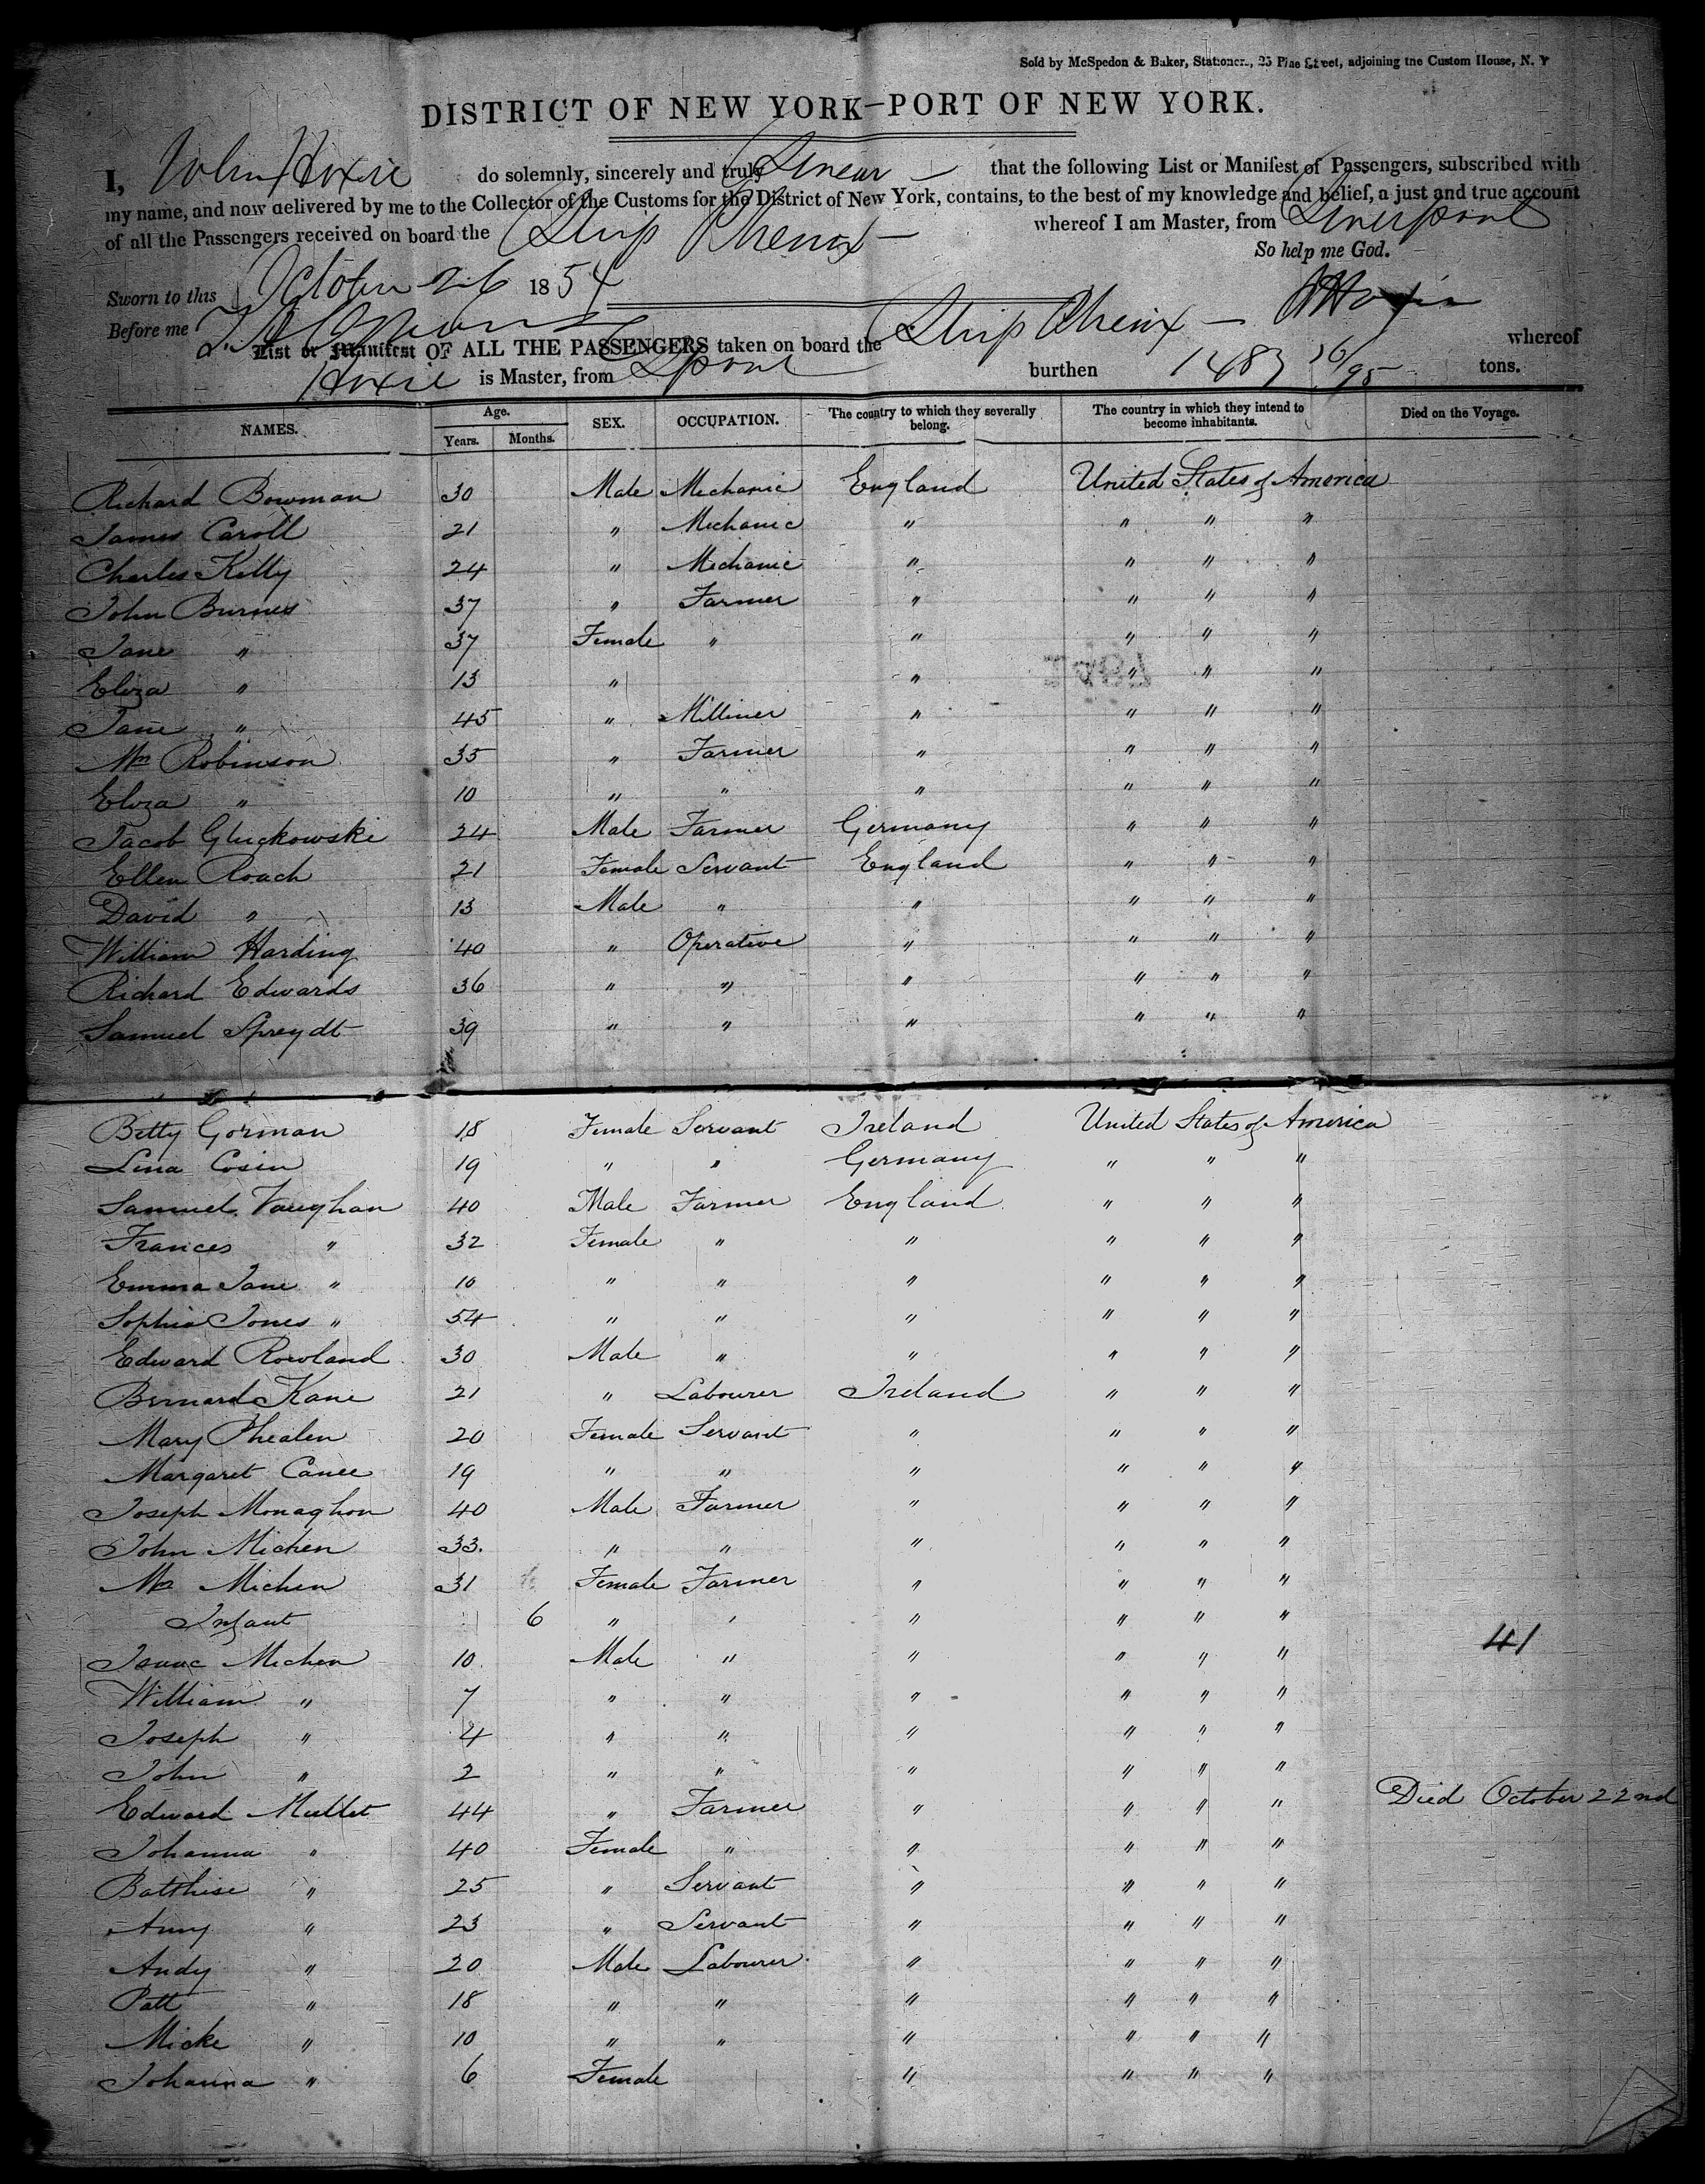 Sold by McSpedon & Baker, Stationers, 25 Pine Street, adjoining the Custom House, N. Y
DISTRICT OF NEW YORK—PORT OF NEW YORK.
I, John Hoxie do solemnly, sincerely and truly Swear that the following List or Manifest of Passengers, subscribed with
my name, and now delivered by me to the Collector of the Customs for the District of New York, contains, to the best of my knowledge and belief, a just and true account
of all the Passengers received on board the Ship Phenix whereof I am Master, from Liverpool
So help me God.
Sworn to this October 26 1854
Before me
List or Manifest OF ALL THE PASSENGERS taken on board the Ship Phenix whereof
Hoxie is Master, from Lpool burthen 1487 16/95 tons.
NAMES. Age. Years. Months. SEX. OCCUPATION. The country to which they severally belong. The country in which they intend to become inhabitants. Died on the Voyage.
Richard Bowman 30 Male Mechanic England United States of America
James Caroll 21 " Mechanic " " " "
Charles Kelly 24 " Mechanic " " " "
John Burnes 37 " Farmer " " " "
Jane " 37 Female " " " " "
Eliza " 13 " " " " "
Jane " 45 " Milliner " " " "
Mrs Robinson 35 " Farmer " " " "
Eliza " 10 " " " " " "
Jacob Gluckowski 24 Male Farmer Germany " " "
Ellen Roach 21 Female Servant England " " "
David " 13 Male " " " " "
William Harding 40 " Operative " " " "
Richard Edwards 36 " " " " " "
Samuel Spreydt 39 " " " " " "
Betty Gorman 18 Female Servant Ireland United States of America
Lina Cosin 19 " " Germany " " "
Samuel Vaughan 40 Male Farmer England " " "
Frances " 32 Female " " " " "
Emma Jane " 10 " " " " " "
Sophia Jones " 54 " " " " " "
Edward Rowland 30 Male " " " " "
Bernard Kane 21 " Labourer Ireland " " "
Mary Phealen 20 Female Servant " " " "
Margaret Canee 19 " " " " " "
Joseph Monaghon 40 Male Farmer " " " "
John Michen 33. " " " " " "
Mrs Michen 31 Female Farmer " " " "
Infant 6 " " " " " "
41
Isaac Michen 10 Male " " " " "
William " 7 " " " " " "
Joseph " 4 " " " " " "
John " 2 " " " " " "
Edward Mullet 44 " Farmer " " " " Died October 22nd
Johanna " 40 Female " " " " "
Batthise " 25 " Servant " " " "
Anny " 23 " Servant " " " "
Andy " 20 Male Labourer " " " "
Patt " 18 " " " " " "
Micke " 10 " " " " " "
Johanna " 6 Female " " " "